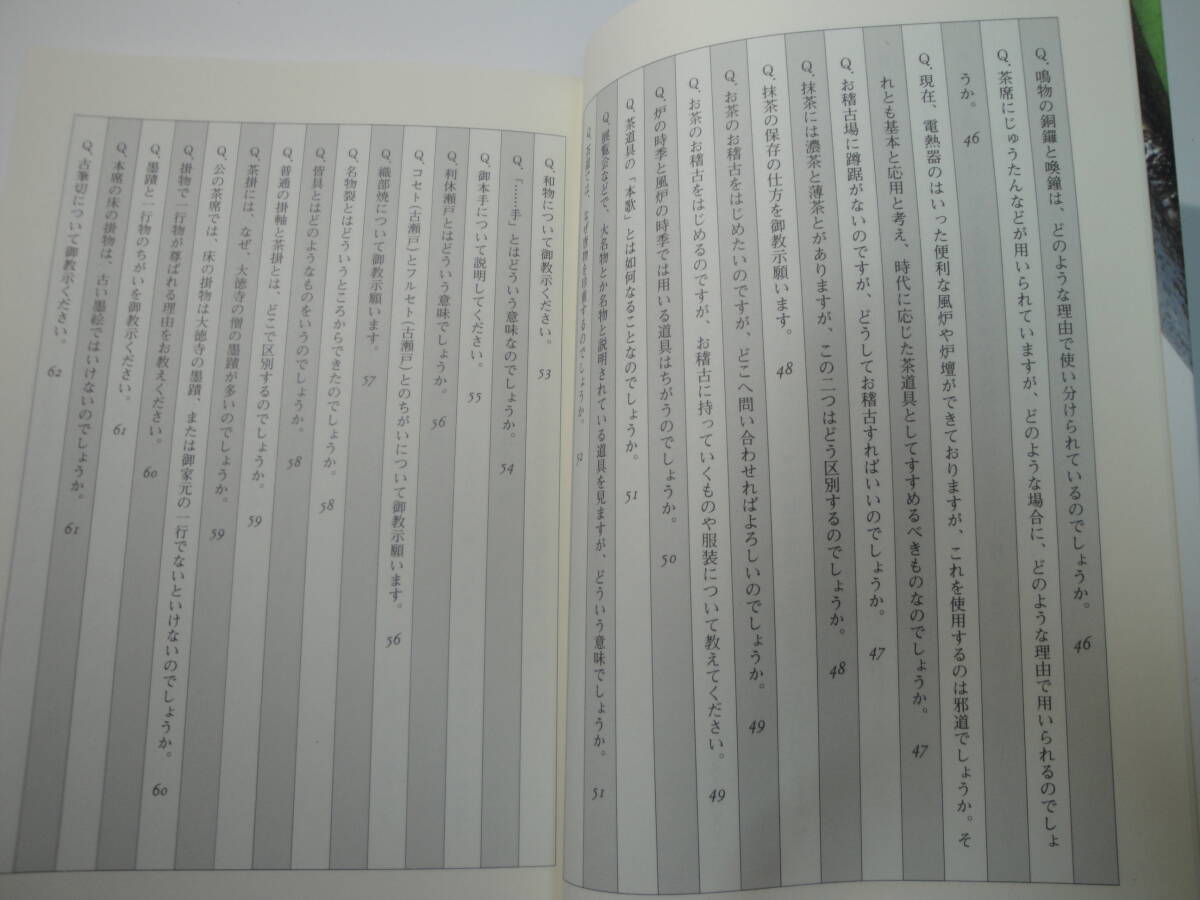 Q. 鳴物の銅鑼と喚鐘は、どのような理由で使い分けられているのでしょうか。 46
Q. 茶席にじゅうたんなどが用いられていますが、どのような場合に、どのような理由で用いられるのでしょ
うか。 46
Q. 現在、電熱器のはいった便利な風炉や炉壇ができておりますが、これを使用するのは邪道でしょうか。そ
れとも基本と応用と考え、時代に応じた茶道具としてすすめるべきものなのでしょうか。 47
Q. お稽古場に蹲踞がないのですが、どうしてお稽古すればいいのでしょうか。 47
Q. 抹茶には濃茶と薄茶とがありますが、この二つはどう区別するのでしょうか。 48
Q. 抹茶の保存の仕方を御教示願います。 48
Q. お茶のお稽古をはじめたいのですが、どこへ問い合わせればよろしいのでしょうか。 49
Q. お茶のお稽古をはじめるのですが、お稽古に持っていくものや服装について教えてください。 49
Q. 炉の時季と風炉の時季では用いる道具はちがうのでしょうか。 50
Q. 茶道具の「本歌」とは如何なることなのでしょうか。 51
Q. 展観会などで、大名物とか名物と説明されている道具を見ますが、どういう意味でしょうか。 51
Q. 茶席では、なぜ物を拝見するのでしょうか。 52
Q. 和物について御教示ください。 53
Q. 「……手」とはどういう意味なのでしょうか。 54
Q. 御本手について説明してください。 55
Q. 利休瀬戸とはどういう意味でしょうか。 56
Q. コセト(古瀬戸)とフルセト(古瀬戸)とのちがいについて御教示願います。 56
Q. 織部焼について御教示願います。 57
Q. 名物裂とはどういうところからできたのでしょうか。 58
Q. 皆具とはどのようなものをいうのでしょうか。 58
Q. 普通の掛軸と茶掛とは、どこで区別するのでしょうか。 59
Q. 茶掛には、なぜ、大徳寺の僧の墨蹟が多いのでしょうか。 59
Q. 公の茶席では、床の掛物は大徳寺の墨蹟、または御家元の一行でないといけないのでしょうか。 60
Q. 掛物で一行物が尊ばれる理由をお教えください。 60
Q. 墨蹟と一行物のちがいを御教示ください。 61
Q. 本席の床の掛物は、古い墨絵ではいけないのでしょうか。 61
Q. 古筆切について御教示ください。 62